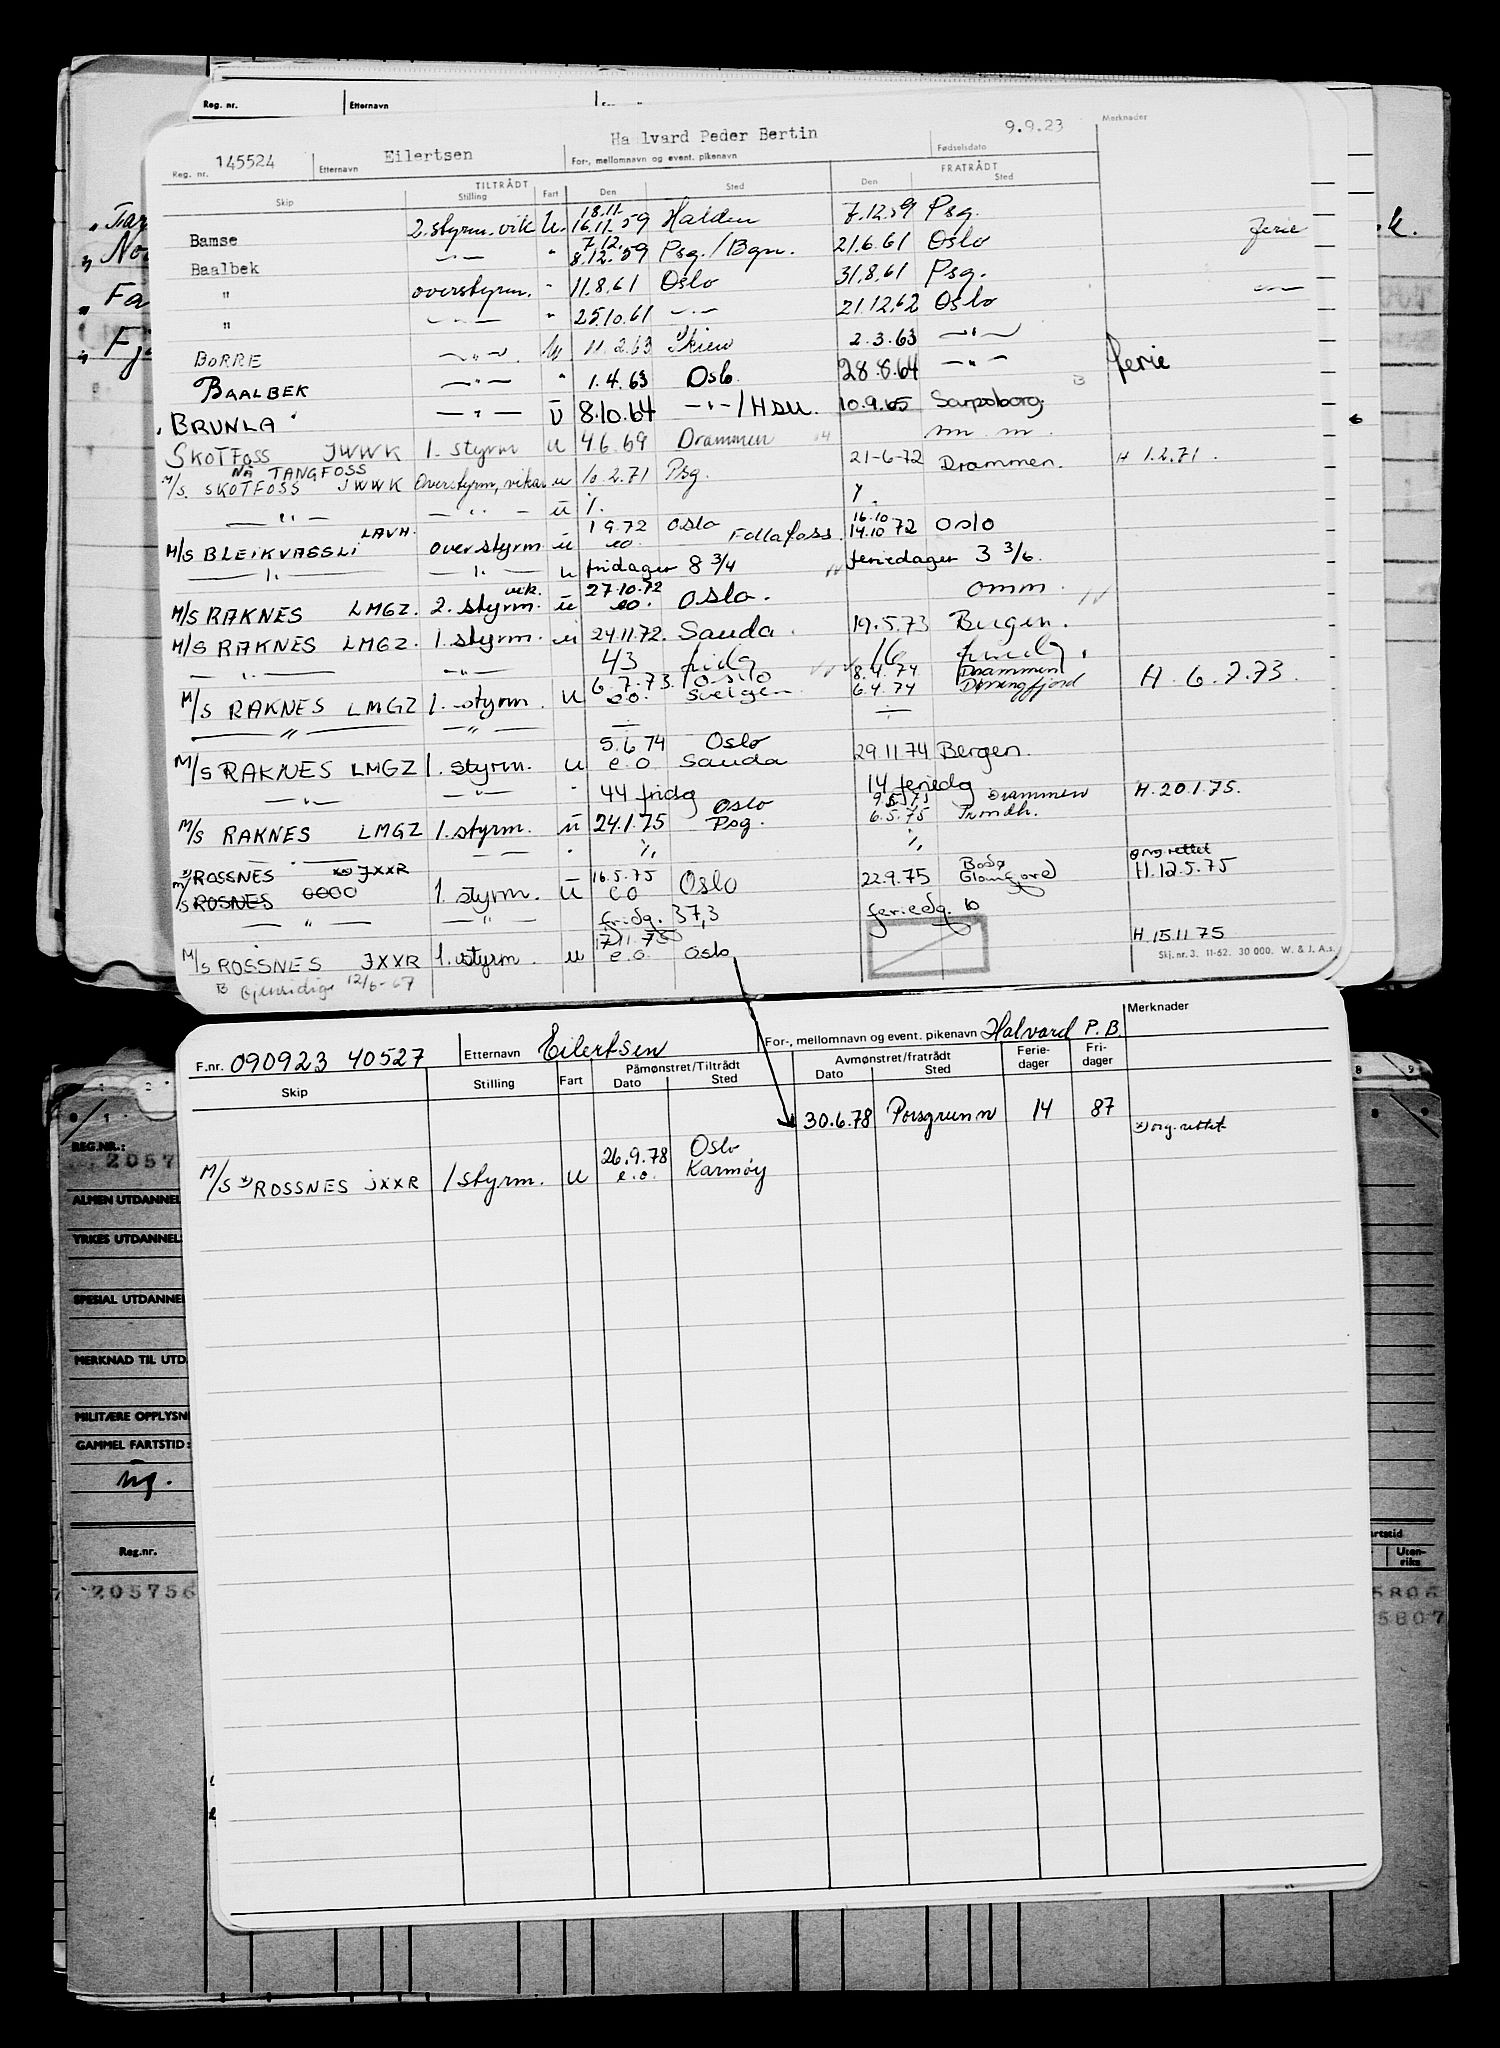 Reg. nr. Etternavn
Reg. nr. 145524 Etternavn Eilertsen For-, mellomnavn og event. pikenavn Halvard Peder Bertin Fødselsdato 9.9.23 Merknader
TILTRÅDT FRATRÅDT
Skip Stilling Fart Den Sted Den Sted
18.11.
Bamse 2. styrm. vik U. 16.11.59 Halden 7.12.59 Psg.
7.12.
Baalbek —"— " 8.12.59 Psg./Bgn. 21.6.61 Oslo ferie
" overstyrm. " 11.8.61 Oslo 31.8.61 Psg.
" —"— " 25.10.61 —"— 21.12.62 Oslo —"—
BORRE —"— 11.2.63 Skien 2.3.63 —"—
BAALBEK —"— " 1.4.63 Oslo 28.8.64 —"— ferie
BRUNLA —"— U 8.10.64 —"—/HDU. 10.9.65 Sarpsborg
SKOTFOSS JWWK 1. styrm u 4.6.69 Drammen m.m.
NÅ TANGFOSS
M/S. SKOTFOSS JWWK Overstyrm, vikar u 10.2.71 Psg. 21-6-72 Drammen. H 1.2.71.
—"— —"— u %. %.
LAVH. 1.9.72 Oslo 16.10
M/S BLEIKVASSLI overstyrm u eo. Follafoss 14.10 72 Oslo
—"— —"— u fridager 8 3/4 feriedager 3 3/6.
vik. 27.10.72
M/S RAKNES LMGZ. 2. styrm. u eo. Oslo. omm.
M/S RAKNES LMGZ. 1. styrm. u 24.11.72. Sauda. 19.5.73 Bergen.
—"— —"— 43 fridg 16
6.7.73. Oslo 8.4.74 Drammen
M/S RAKNES LMGZ 1. styrm. u eo. Svelgen 6.4.74 H. 6.7.73.
—"— —"— ÷ ÷
5.6.74 Oslo
M/S RAKNES LMGZ 1. styrm. u e.o. Sauda 29.11.74 Bergen.
—"— —"— " 44 fridg 14 feriedg
Oslo 9.5.75 Drammen H. 20.1.75.
M/S RAKNES LMGZ 1. styrm. u 24.1.75 Psg. 6.5.75 Trondh.
—"— —"— " % %
x) ROSSNES JXXR 16.5.75 Bodø ørg. rettet
M/S ROSNES 1. styrm. u eo Oslo 22.9.75 Glomfjord H. 12.5.75
—"— —"— fridg. 37,3 feriedg. 10
17.11.75
M/S ROSSNES JXXR 1. styrm. u e.o. Oslo H. 15.11.75
Skj. nr. 3. 11-62. 30 000. W. & J. A.s.
B Gjensidige 12/6-67
F.nr. 090923 40527 Etternavn Eilertsen For-, mellomnavn og event. pikenavn Halvard P.B. Merknader
Påmønstret/Tiltrådt Avmønstret/fratrådt Ferie- Fri-
Skip Stilling Fart Dato Sted Dato Sted dager dager
30.6.78 Porsgrunn 14 87
x) org. rettet
26.9.78 Oslo
M/S x) ROSSNES JXXR 1 styrm. u e.o. Karmøy
REG.NR.:
2057
ALMEN UTDANNEL
YRKES UTDANNEL
SPESIAL UTDANNEL
MERKNAD TIL UTD.
MILITÆRE OPPLYSN
GAMMEL FARTSTID:
Reg.nr.
205756
artstid
Uten-
riks
5806
5807